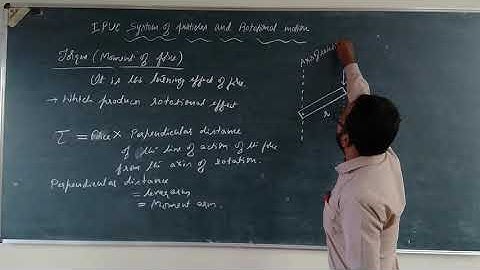 I PUC System of particles and Rotational motion
Torque (Moment of force)
It is the turning effect of force.
→ Which produce rotational effect
τ = Force × Perpendicular distance
of the line of action of the force
from the axis of rotation.
Perpendicular distance
= lever arm
= Moment arm.
Axis of rotation
r